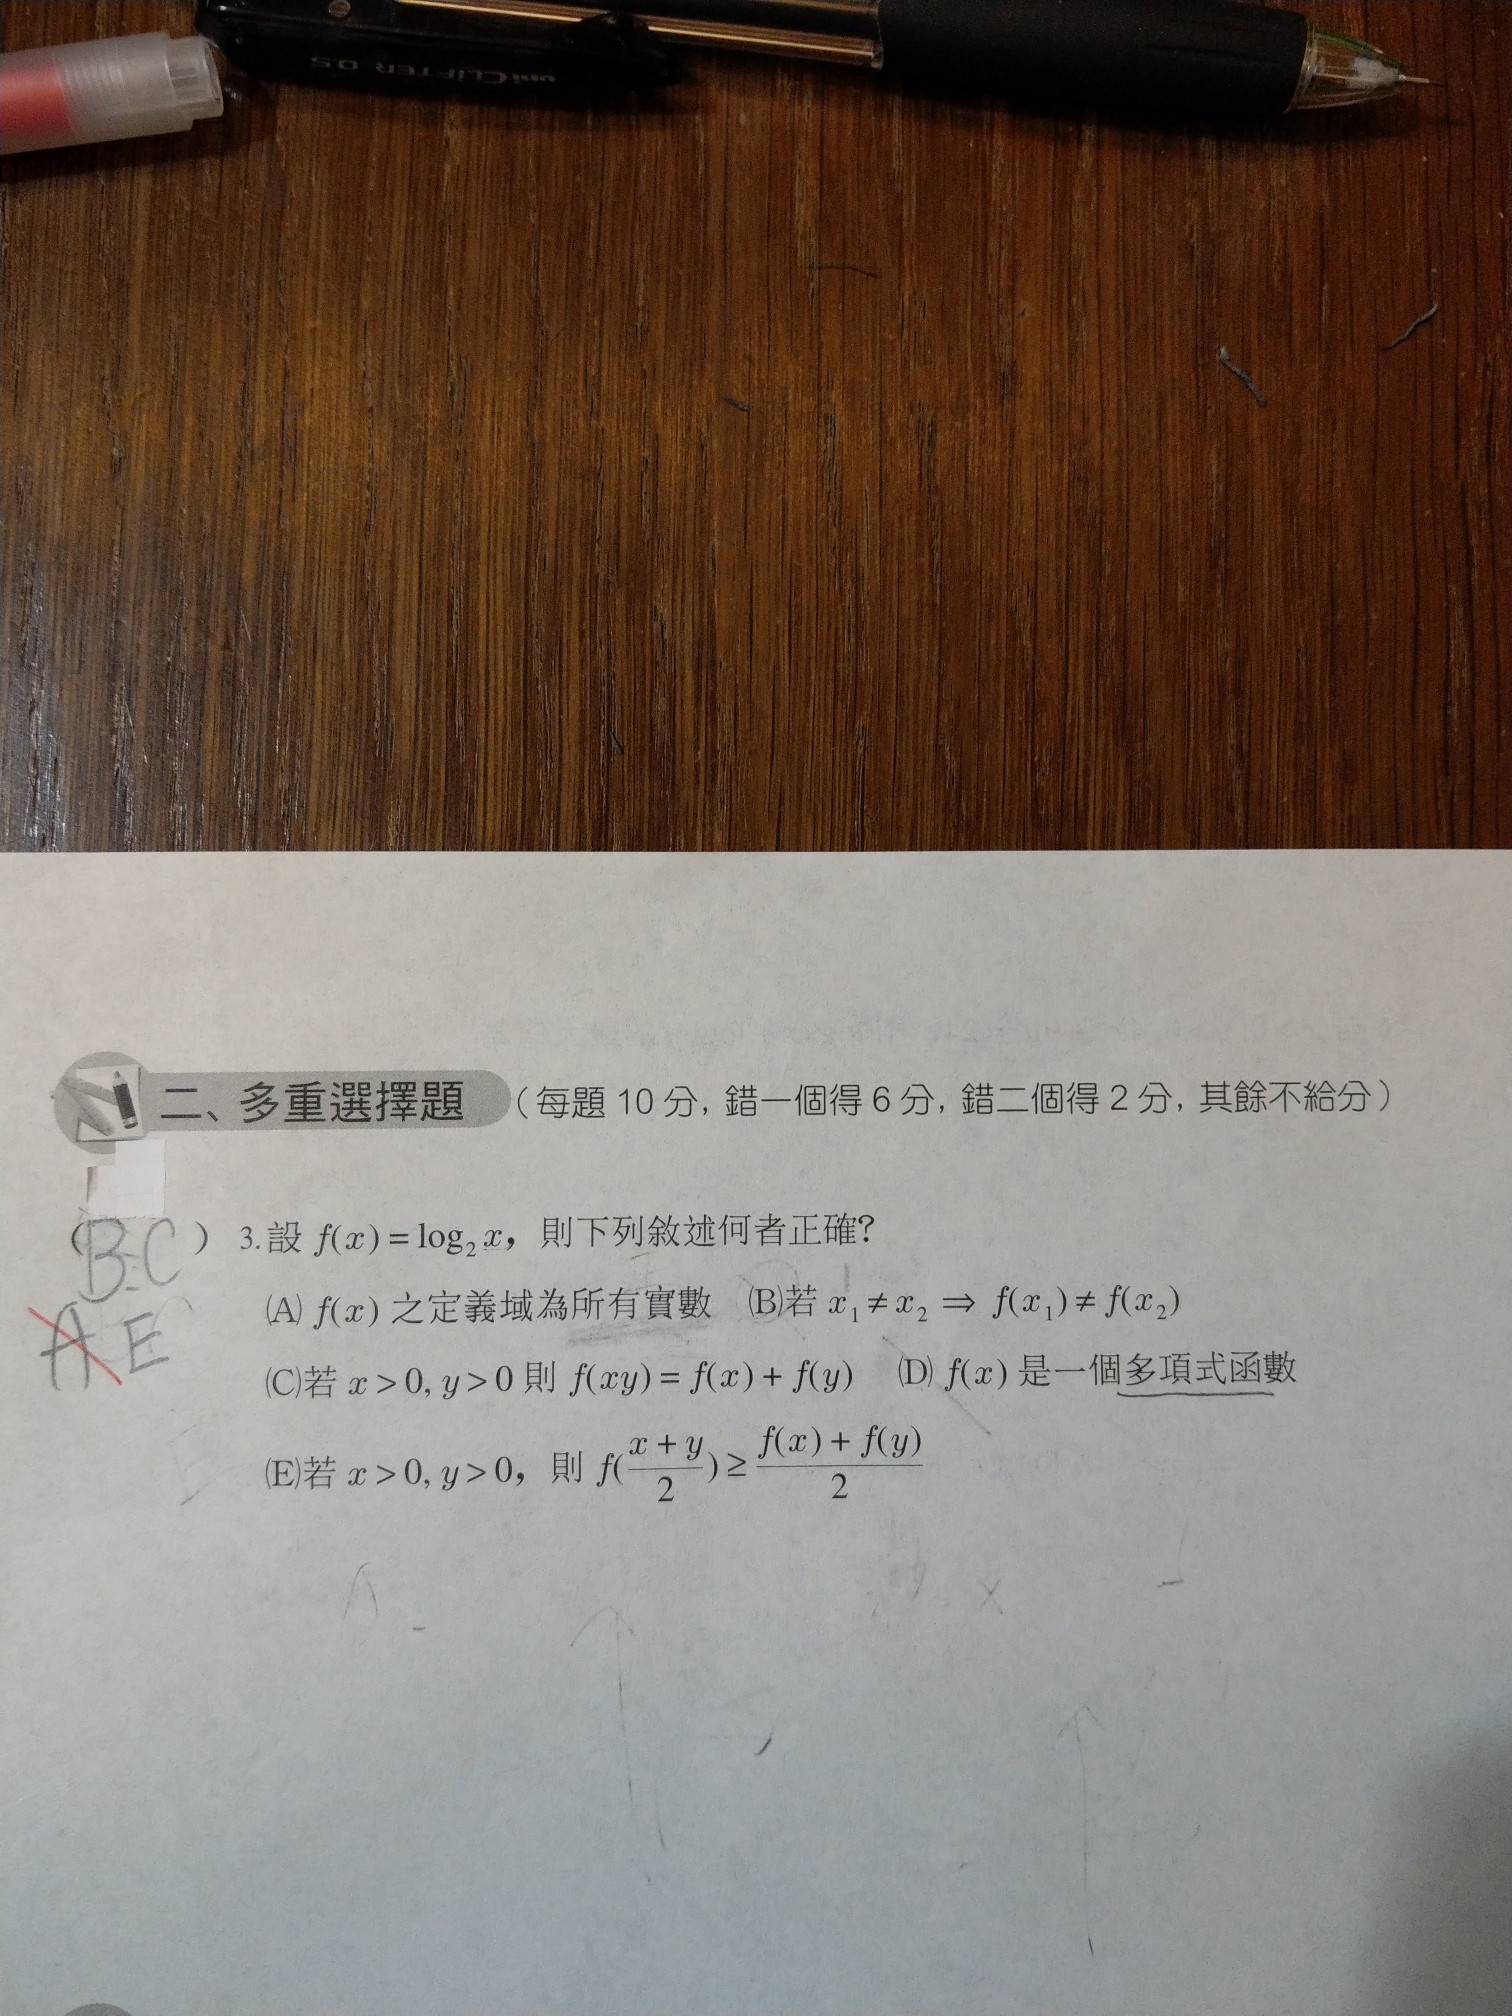 uni CLiFTER 0.5
二、多重選擇題 (每題 10 分, 錯一個得 6 分, 錯二個得 2 分, 其餘不給分)
(B.C) 3.設 f(x)=log₂x, 則下列敘述何者正確?
A E
(A) f(x) 之定義域為所有實數 (B)若 x₁≠x₂ ⇒ f(x₁)≠f(x₂)
(C)若 x>0, y>0 則 f(xy)=f(x)+f(y) (D) f(x) 是一個多項式函數
(E)若 x>0, y>0, 則 f((x+y)/2)≥(f(x)+f(y))/2
A